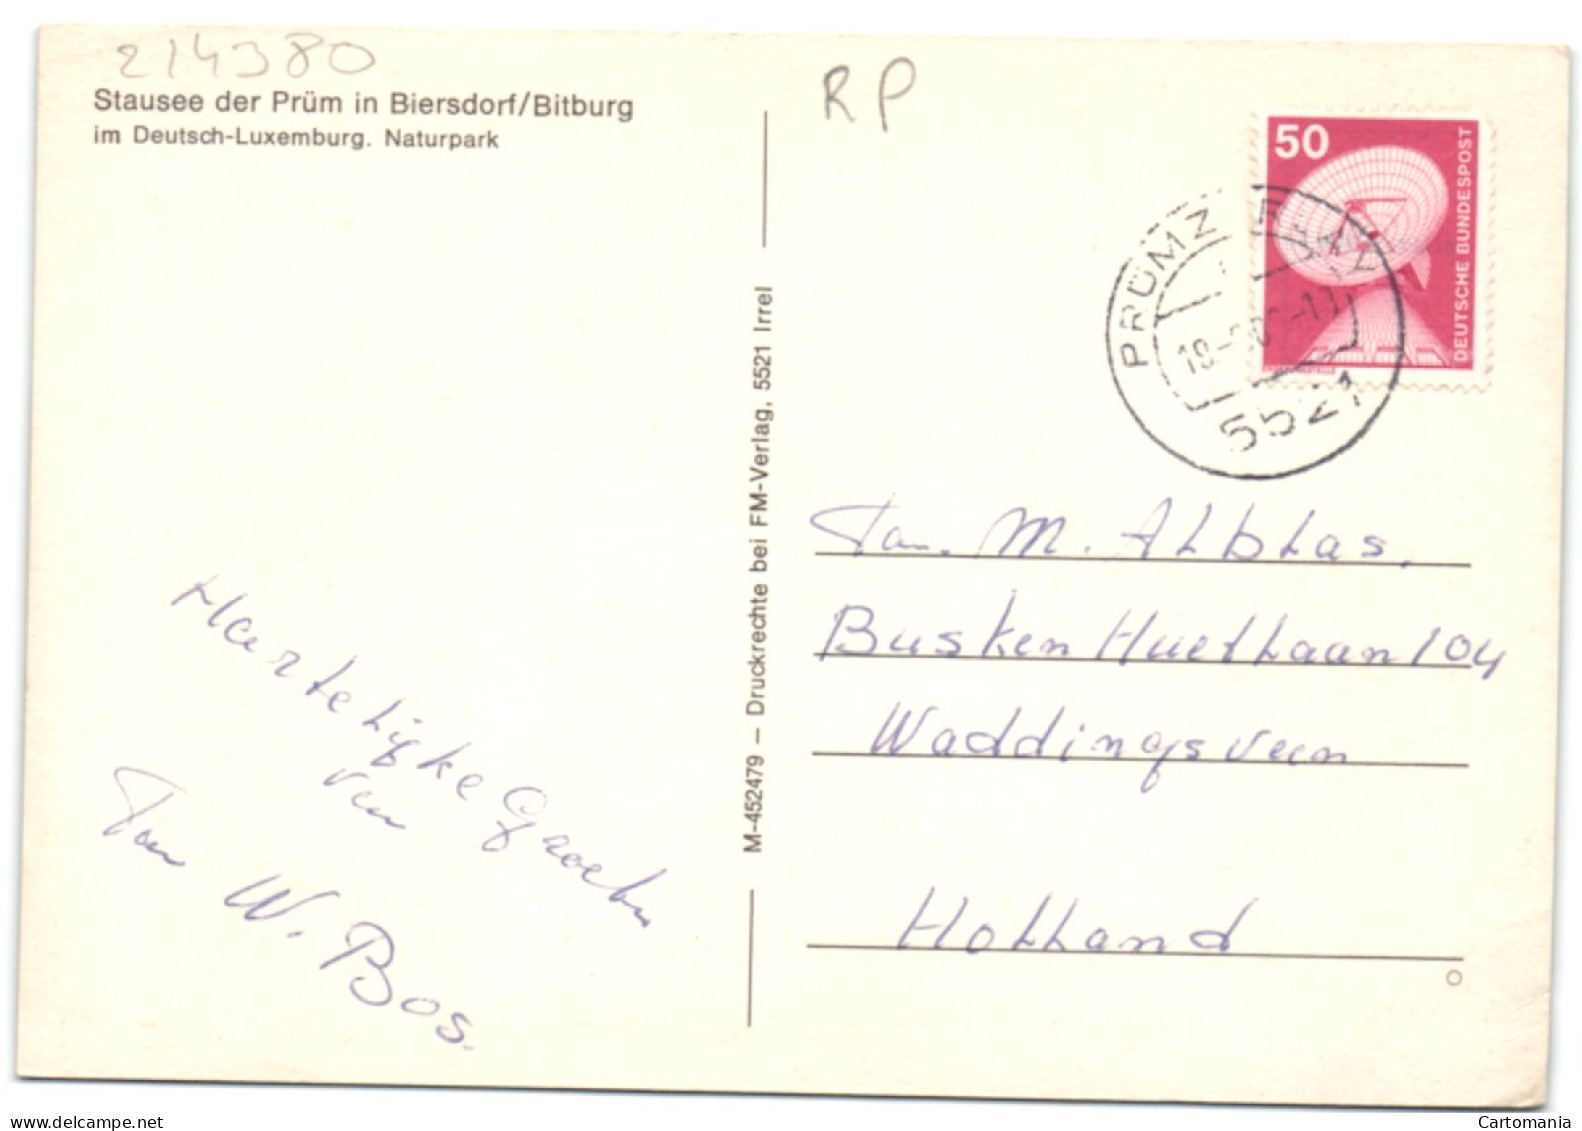 214380
RP
Stausee der Prüm in Biersdorf/Bitburg
im Deutsch-Luxemburg. Naturpark
50
DEUTSCHE BUNDESPOST
PRÜMZ
5521
M-452479 – Druckrechte bei FM-Verlag, 5521 Irrel
Fam. M. Alblas,
Busken Huetlaan 104
Waddingsveen
Holland
Hartelijke Groeten
van
Fam
W. Bos.
Cartomania